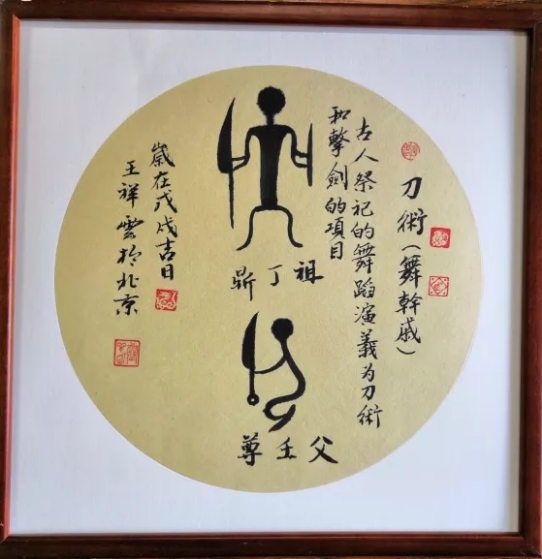 刀術（舞幹戚）
古人祭祀的舞蹈演義为刀術
和擊劍的項目
祖丁
父壬尊
歲在戊戌吉日
王祥雲於北京